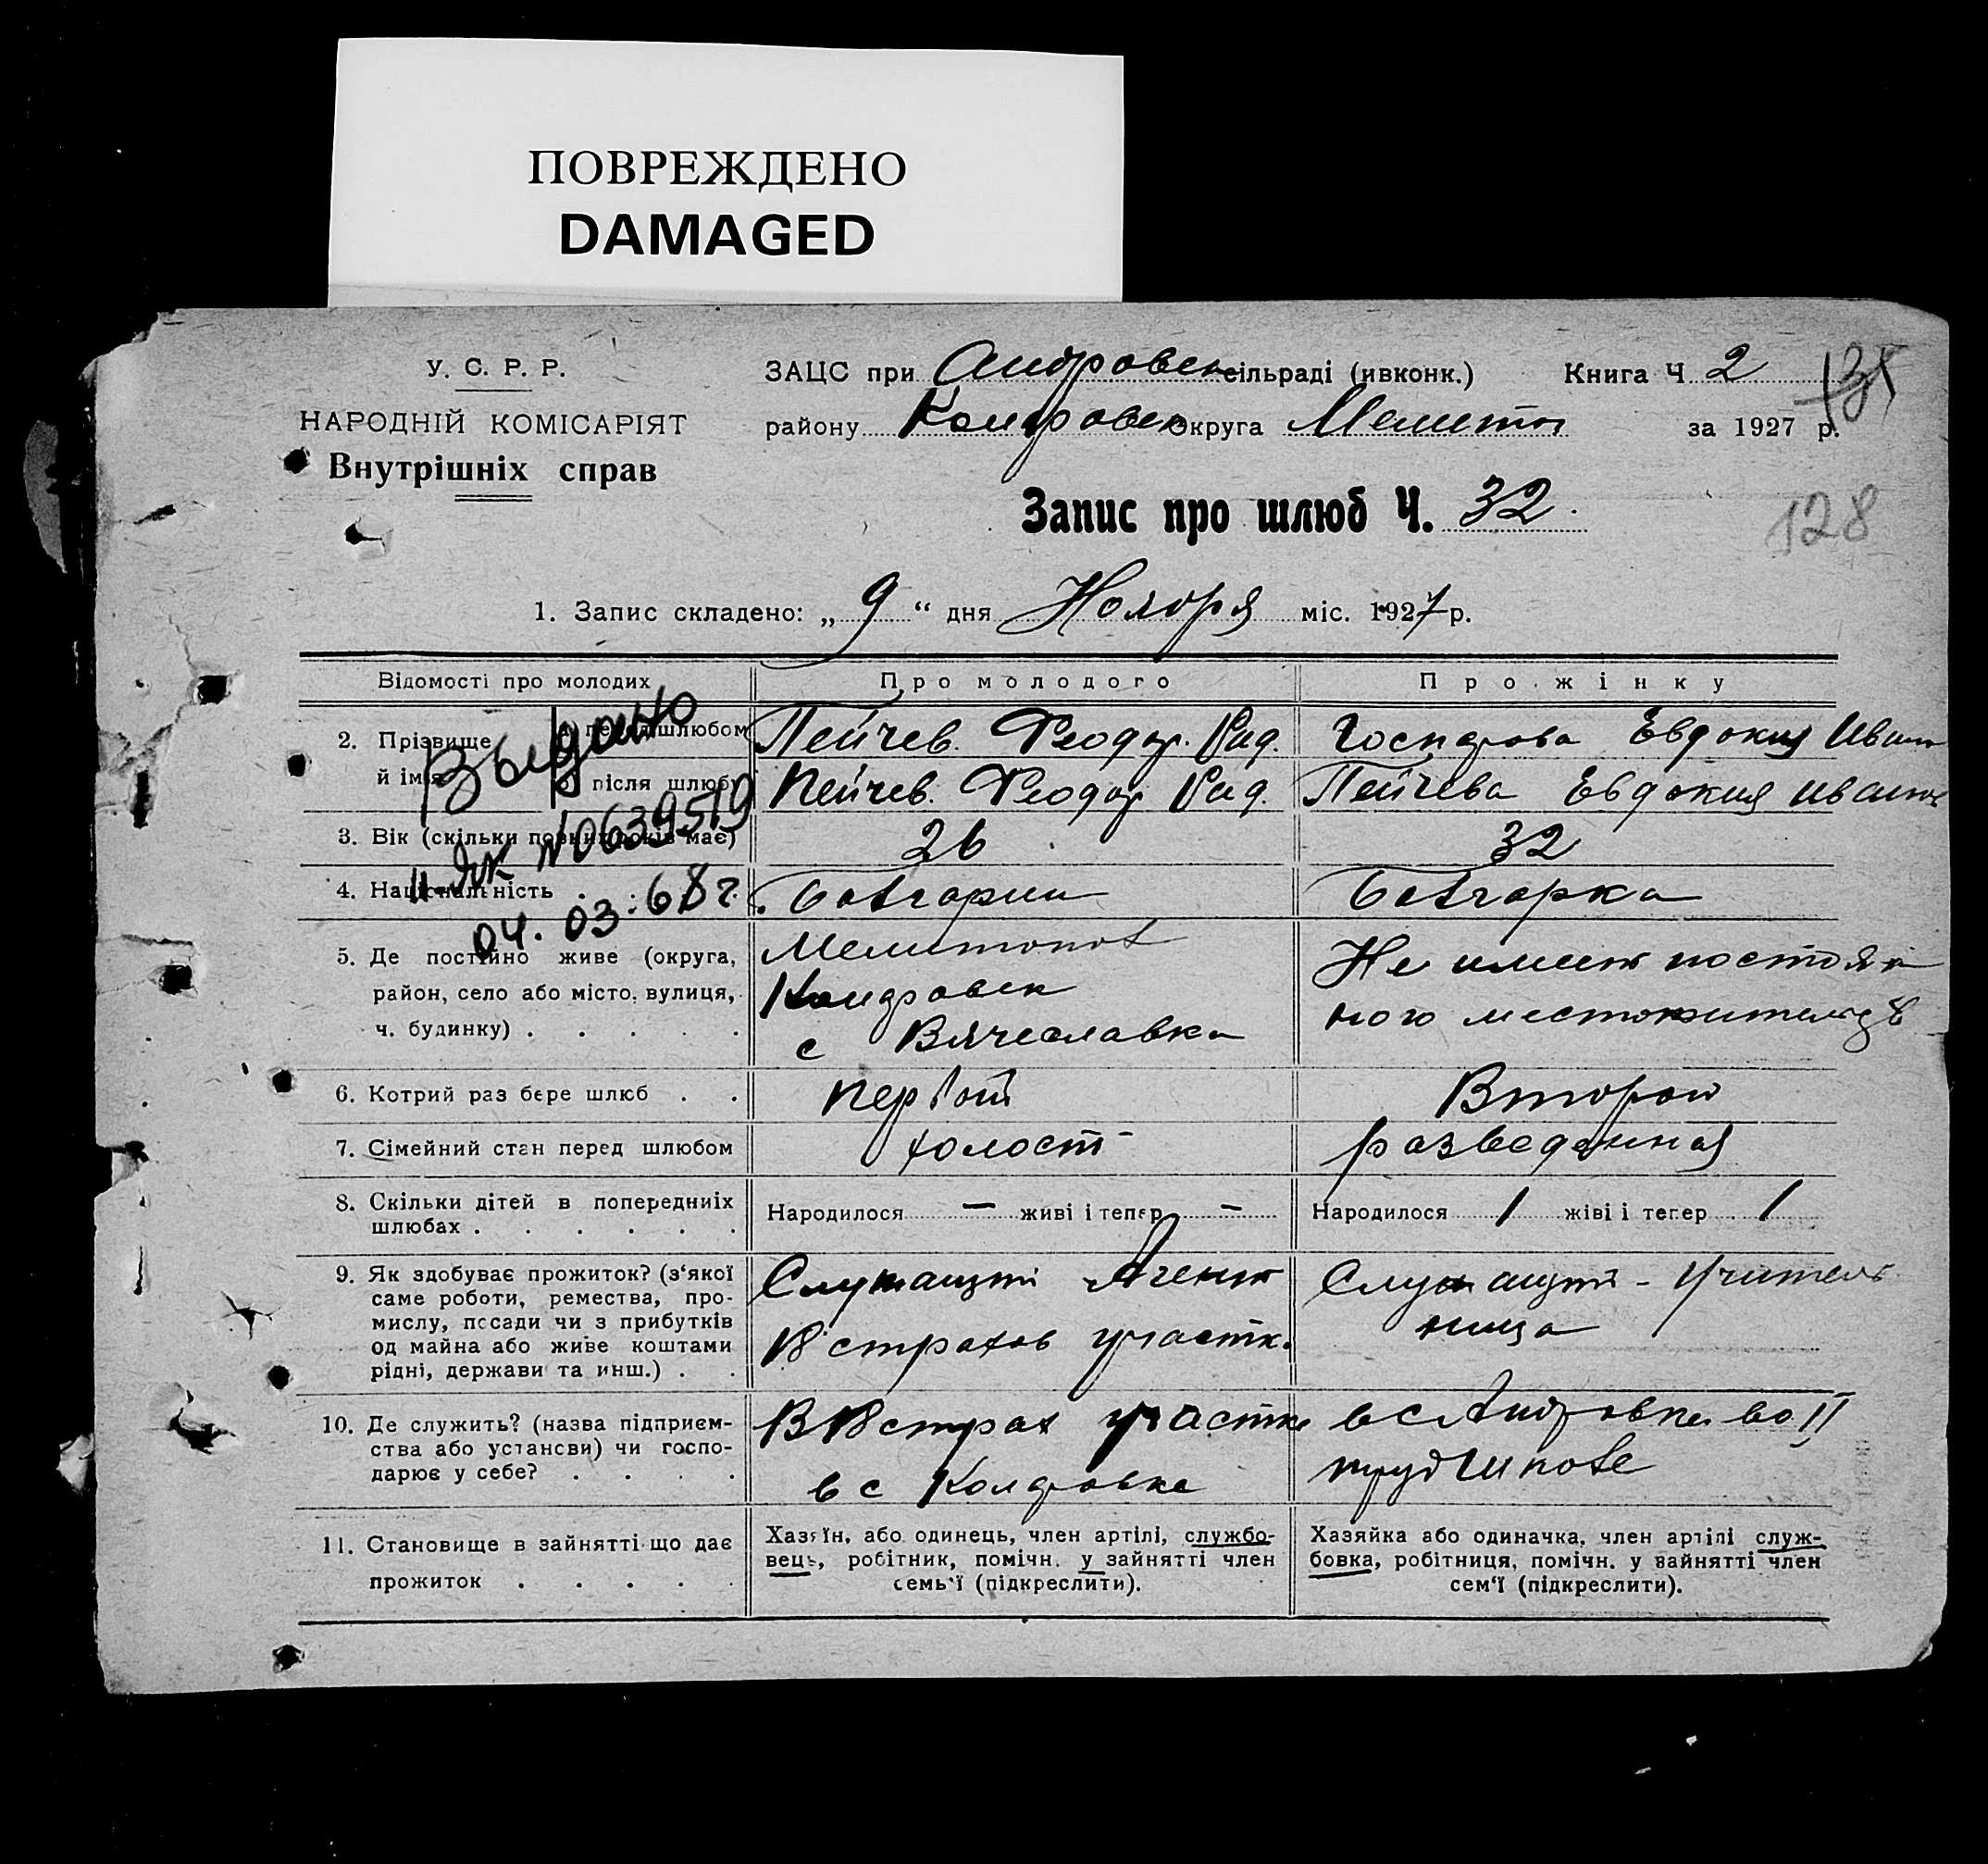 ПОВРЕЖДЕНО
DAMAGED
У. С. Р. Р.
НАРОДНІЙ КОМІСАРІЯТ
Внутрішніх справ
ЗАЦС при Андровск сільраді (ивконк.) Книга Ч 2
району Колдровск Округа Мелитоп за 1927 р.
135
Запис про шлюб Ч. 32.
128
1. Запис складено: „ 9 “ дня Ноября міс. 1927 р.
Відомості про молодих Про молодого Про жінку
2. Прізвище й ім'я
перед шлюбом Пейчев. Феодор. Рид. Госпдрова Евдокия Иван
після шлюбу Пейчев. Феодор Рид. Пейчева Евдокия Иванов
Выдано
N 0639519
04. 03. 68 г.
3. Вік (скільки повних років має) 26 32
4. Національність Болгарин Болгарка
5. Де постійно живе (округа, район, село або місто, вулиця, ч. будинку)
Мелитопол
Колдровск
с Вячеславка
Не имеет постоян
ного местожительств
6. Котрий раз бере шлюб первый Второй
7. Сімейний стан перед шлюбом холост разведенная
8. Скільки дітей в попередниіх шлюбах
Народилося — живі і тепер —
Народилося 1 жіві і тепер 1
9. Як здобуває прожиток? (з‘якої
саме роботи, ремества, про-
мислу, посади чи з прибутків
од майна або живе коштами
рідні, держави та инш.)
Служащий Агент
страхов участк.
Служащий - Учитель
ница
10. Де служить? (назва підприєм-
ства або установи) чи госпо-
дарює у себе?
В страх участке
в с Колдровке
в с Андровке во II
трудшколе
11. Становище в зайнятті що дає
прожиток
Хазяїн, або одинець, член артілі, службо-
вець, робітник, помічн. у зайнятті член
семь‘ї (підкреслити).
Хазяйка або одиначка, член артілі служ-
бовка, робітниця, помічн. у зайнятті член
сем‘ї (підкреслити).